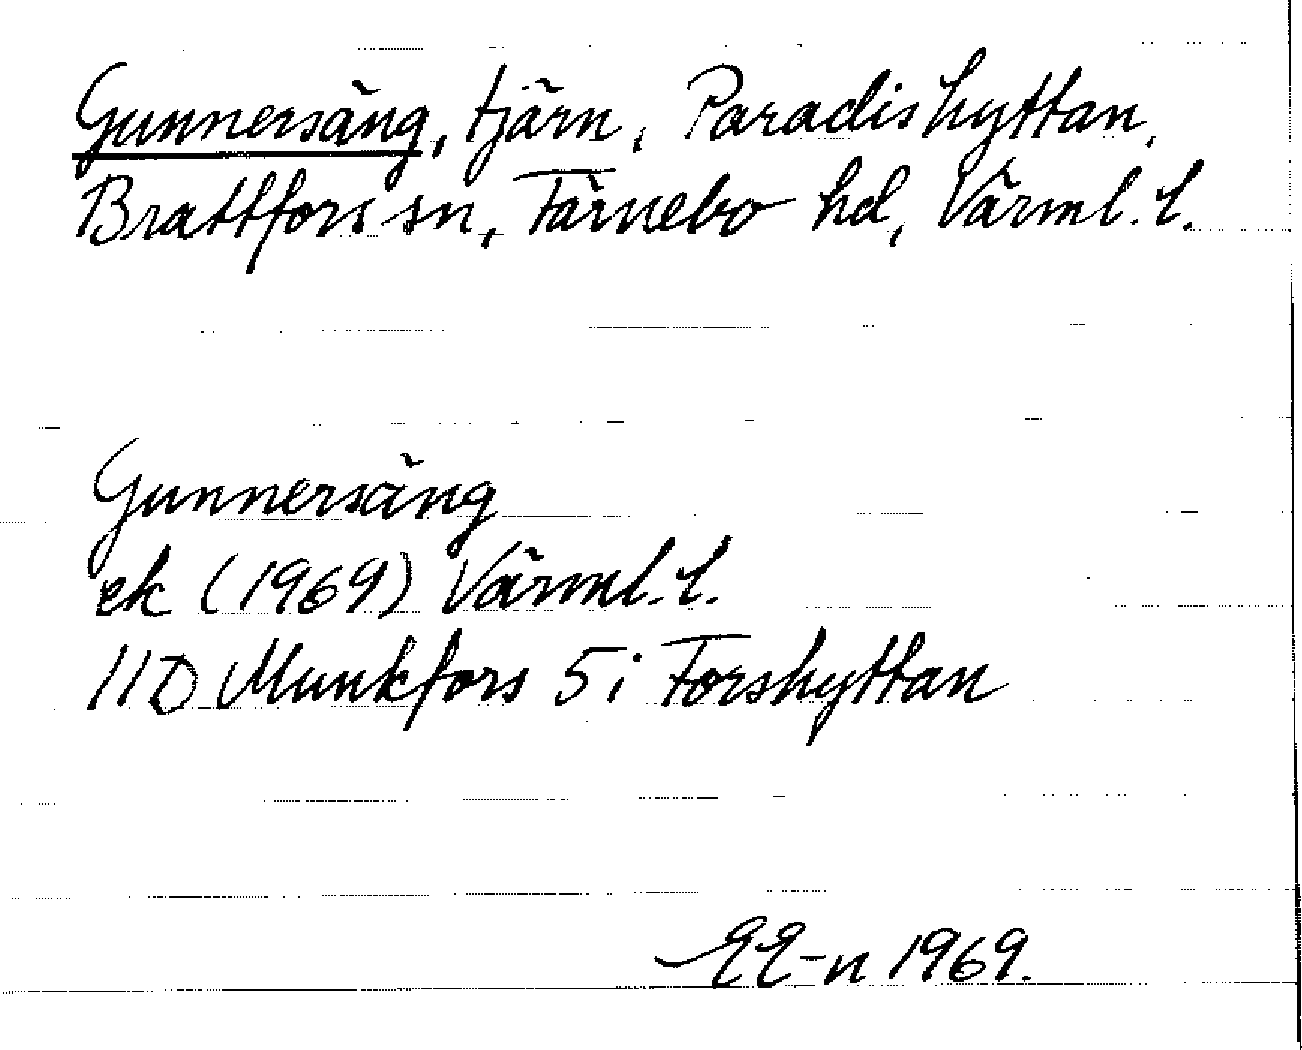 Gunnersäng, tjärn, Paradishyttan,
Brattfors sn, Färnebo hd, Värml. l.
Gunnersäng
ek (1969) Värml. l.
11D Munkfors 5i Forshyttan
EE-n 1969.